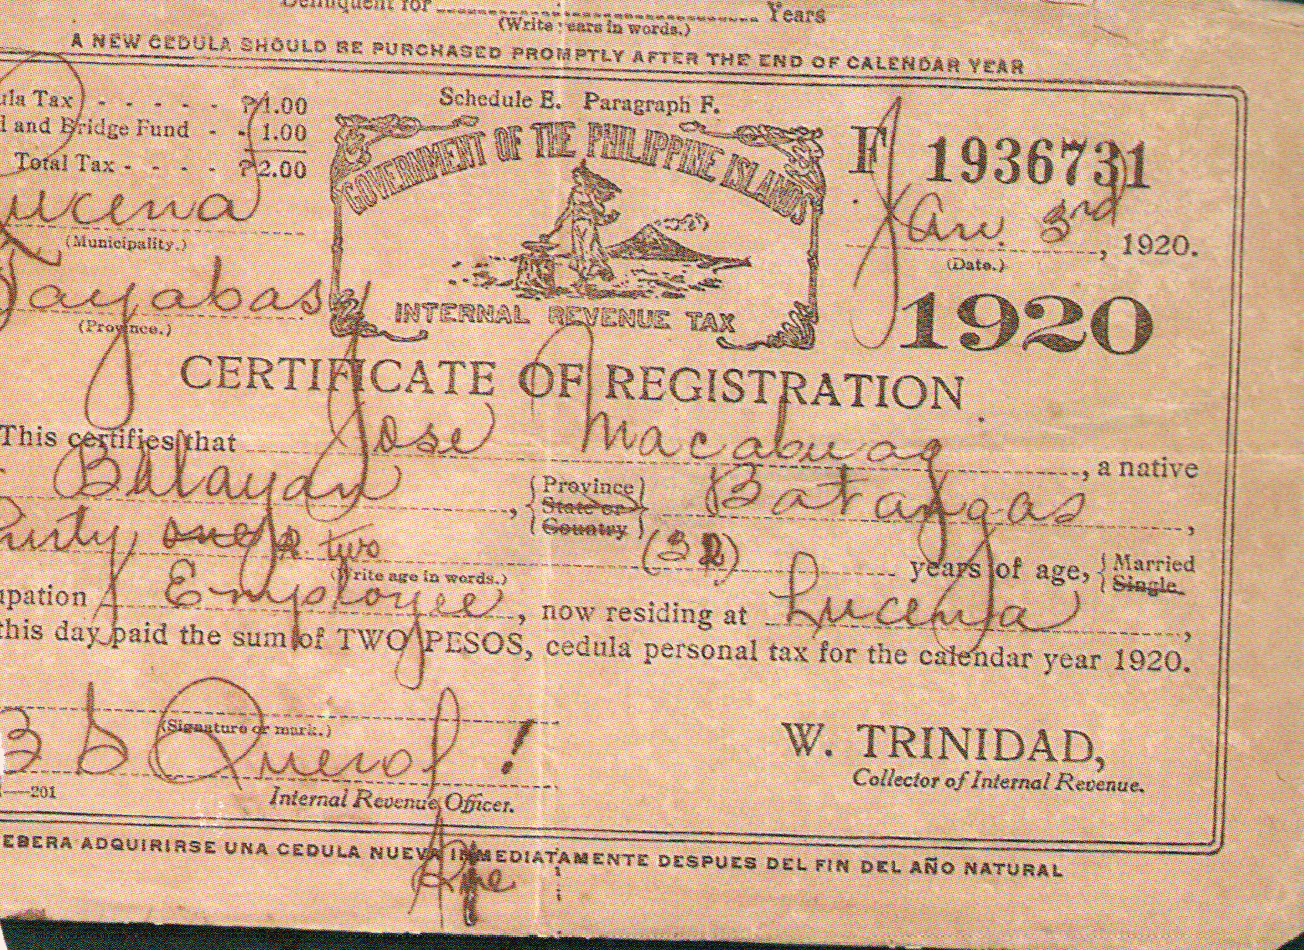 Delinquent for Years
(Write years in words.)
A NEW CEDULA SHOULD BE PURCHASED PROMPTLY AFTER THE END OF CALENDAR YEAR
ula Tax - - - - - ₱1.00
d and Bridge Fund - - 1.00
Total Tax - - - - ₱2.00
Schedule E. Paragraph F.
GOVERNMENT OF THE PHILIPPINE ISLANDS
INTERNAL REVENUE TAX
F 1936731
Lucena
(Municipality.)
Jan. 3rd, 1920.
(Date.)
Tayabas
(Province.)
1920
CERTIFICATE OF REGISTRATION
This certifies that Jose Macabuag, a native
Balayan, {Province State or Country} Batangas,
thirty one two (32) years of age, {Married Single
(Write age in words.)
upation Employee, now residing at Lucena,
this day paid the sum of TWO PESOS, cedula personal tax for the calendar year 1920.
(Signature or mark.)
B b Querol
W. TRINIDAD,
Collector of Internal Revenue.
—201
Internal Revenue Officer.
EBERA ADQUIRIRSE UNA CEDULA NUEVA INMEDIATAMENTE DESPUES DEL FIN DEL AÑO NATURAL